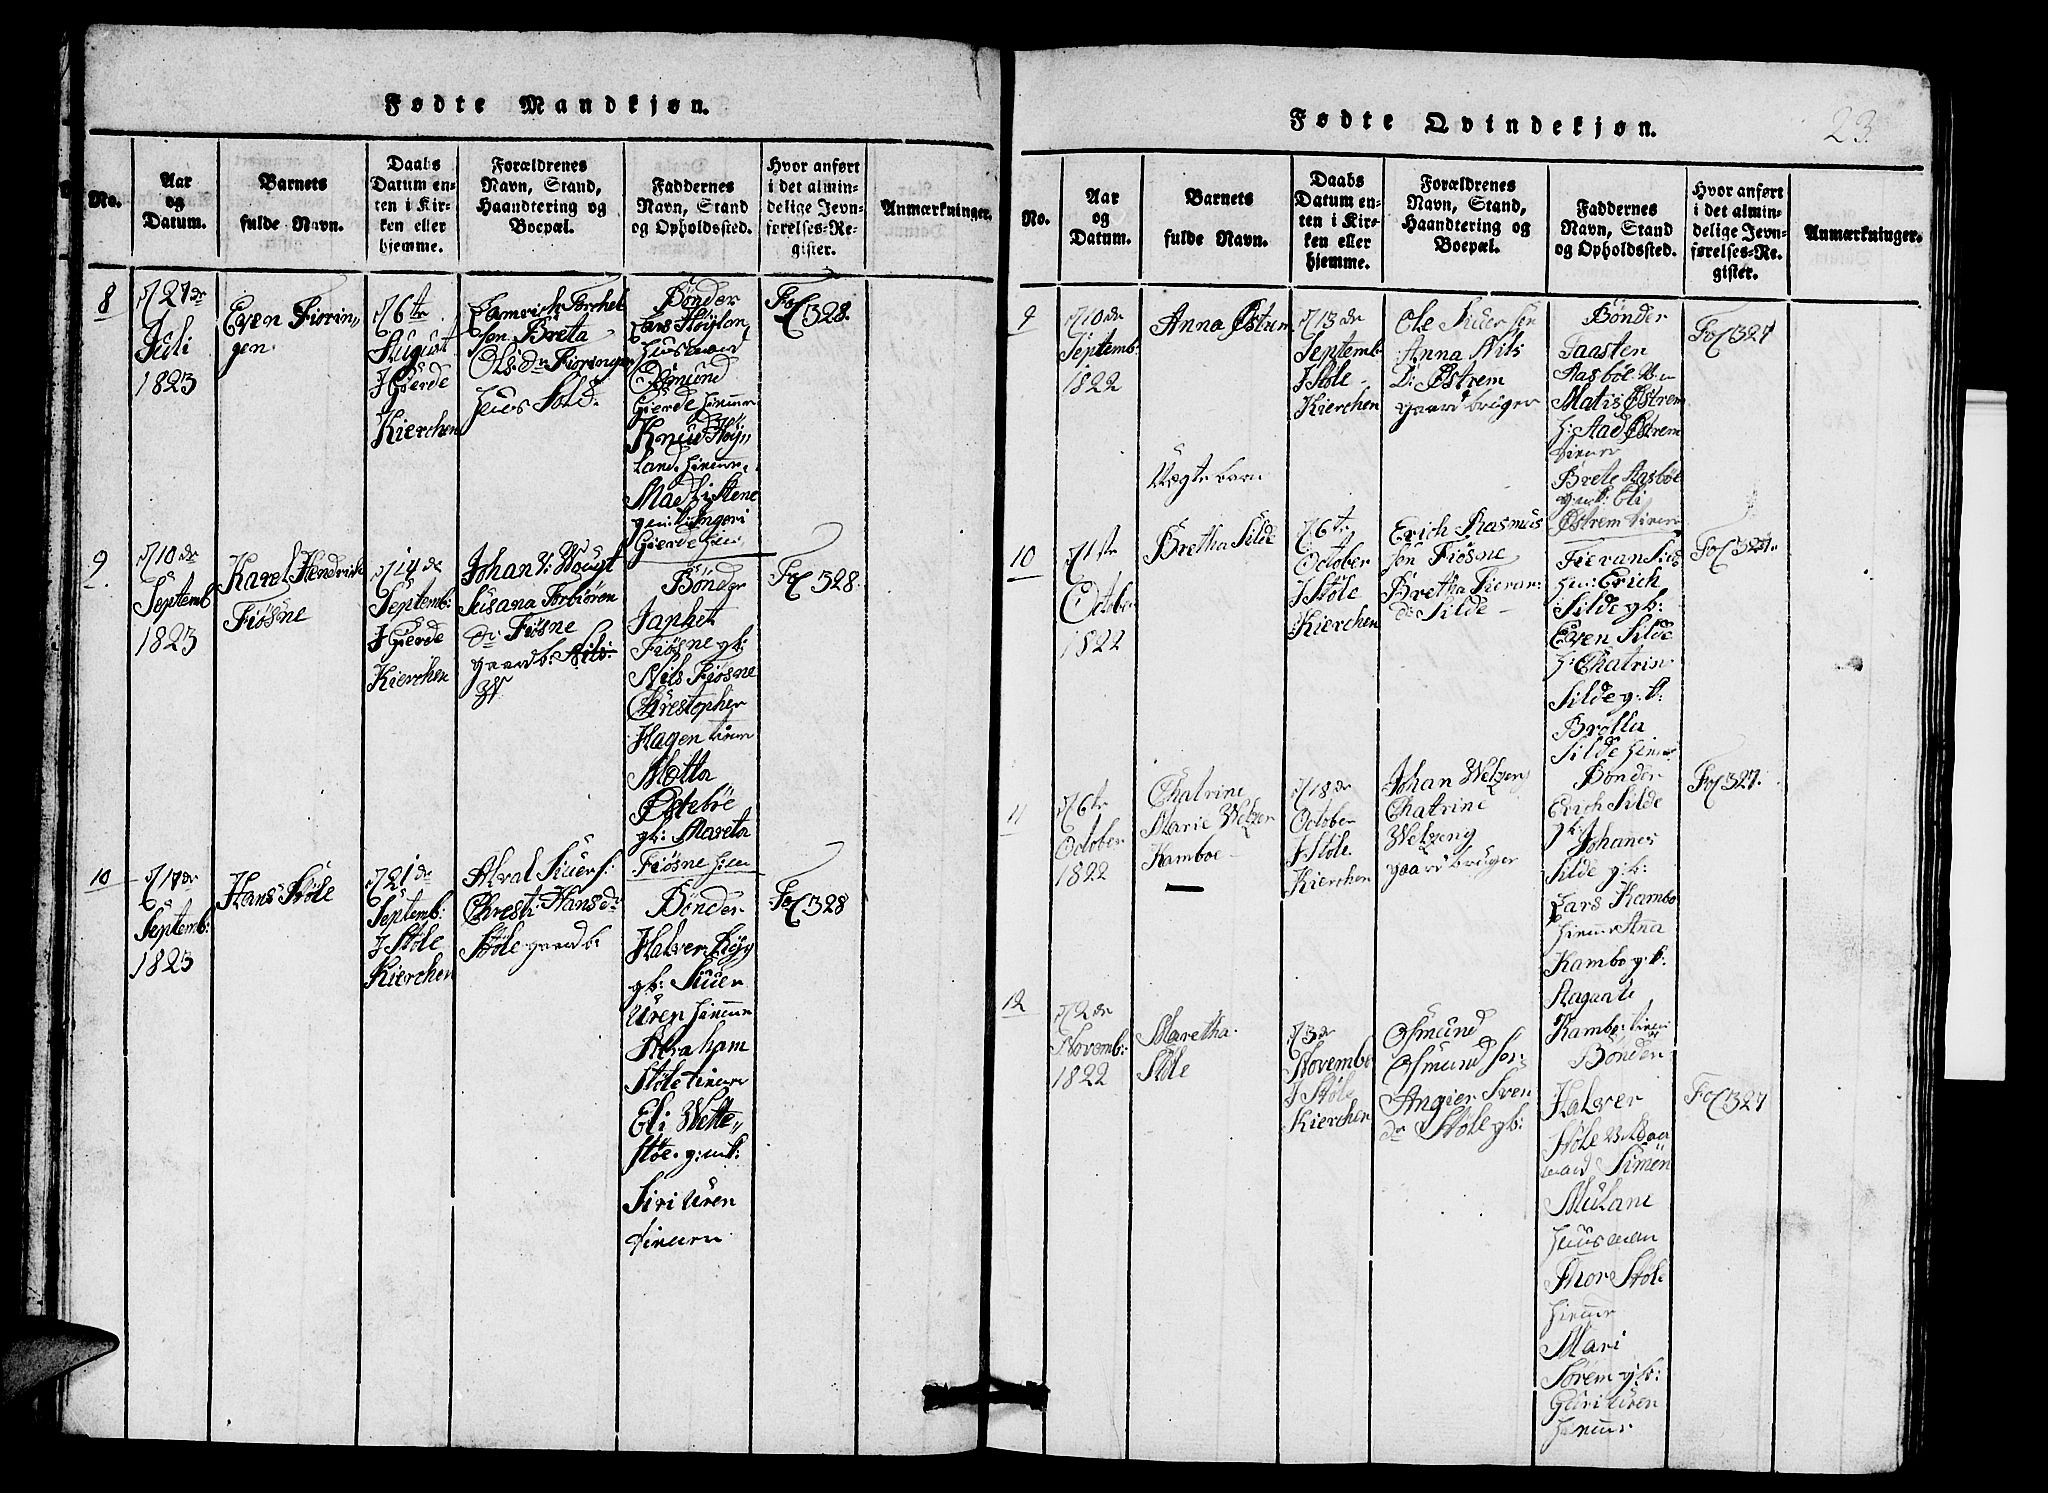 Fødte Mandkjøn.
No.
Aar
og
Datum.
Barnets
fulde Navn.
Daabs
Datum en-
ten i Kir-
ken eller
hjemme.
Forældrenes
Navn, Stand,
Haandtering og
Boepæl.
Faddernes
Navn, Stand
og Opholdssted.
Hvor anført
i det almin-
delige Jevn-
førelses-Re-
gister.
Anmærkninger.
8
27de
Juli
1823
Even Fiorin„
gen
6te
August
J Gierde
Kierchen
Torchel
Sön Breta
Ols: dr Fioringen
Huus Sold:
Bönder
Lars Höylan
Huusmand
Osmund
Gierde
Knud Höyn
land
Madli Stene
Ingeri
Gierde
Fol 328.
9
10de
Septemb
1823
Karel Hendrich
Fiösne
14de
Septemb:
J Gierde
Kierchen
Johan
Susana Torbiören
dr: Fiösne
gaardb:
Bönder
Japhet
Fiösne gb:
Nils Fiösne
Christopher
Hagen
Motta
Östeböe
gk: Mareta
Fiösne
Fol 328.
10
17de
Septemb:
1823
Hans Stöle
21de
Septemb:
J Stöle
Kierchen
Siuer s:
Christi Hansdr
Stöle gaardb:
Bönder
Halver
gb: Siuer
Uren
Abraham
Stöle
Eli Vette„
Stöe.
Siri Uren
Fol 328
Fødte Qvindekjøn.
23.
No.
Aar
og
Datum.
Barnets
fulde Navn.
Daabs
Datum en-
ten i Kir-
ken eller
hjemme.
Forældrenes
Navn, Stand,
Haandtering og
Boepæl.
Faddernes
Navn, Stand
og Opholdssted.
Hvor anført
i det almin-
delige Jevn-
førelses-Re-
gister.
Anmærkninger.
9
10de
Septemb:
1822
Anna Östrem
Uægte barn
13de
Septemb
J Stöle
Kierchen
Ole Siuersen
Anna Nils
D: Östrem
gaardbruger
Bönder
Taasten
Aasböe
Matis Östrem
Aad Östrem
Brete Aasböe
Eli
Östrem
Fol 327
10
1te
October
1822
Bretha Silde
6te
October
J Stöle
Kierchen
Erich Rasmus
sön Fiösne
Bretha Fieran:
d: Silde
Fieran Silde
Erich
Silde gb:
Even Silde
Chatrin
Silde g:k:
Brölla
Silde
Fol 327.
11
6te
October
1822
Chatrine
Marie Welzen
Kamboe
18de
October
J Stöle.
Kierchen
Johan Welzen
Chatrine
Welzeng
gaardbruger
Bönder
Erich Silde
Johanes
Silde g:k:
Lars Kambo
Ana
Kambo g:k:
Aagaate
Kambo:
Fol 327.
12
2de
Novemb:
1822
Maretha
Stöle
3de
Novembe
J Stöle
Kierchen
Osmund
Osmundsön:
Angier Sven
dr Stöle gb:
Bönder
Halver
Stöle
Simon
Mulane
Huusman
Thore Stöle
Mari
Sörem gk:
Guri Uren
Fol 327